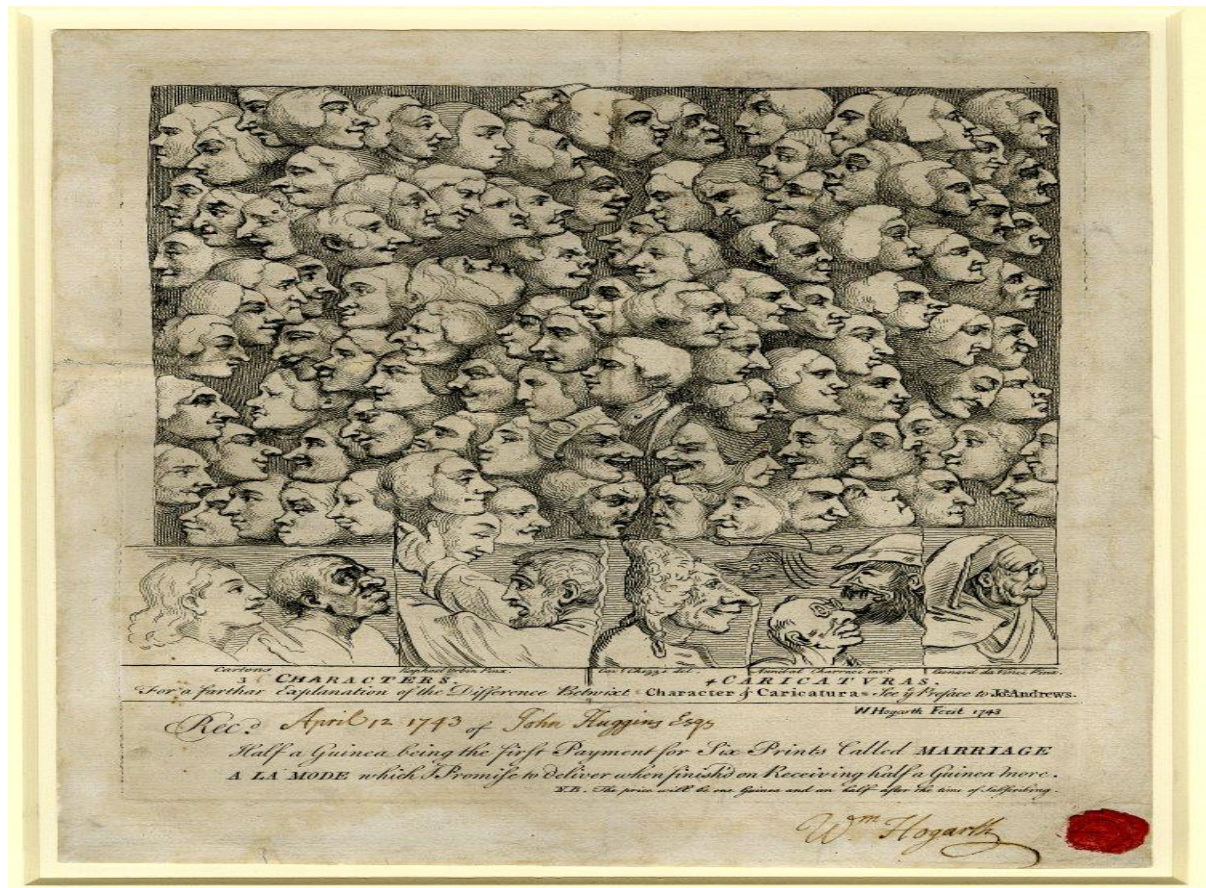 Cartons Raphael Urbin Pinx. Cav.r Chezze del. Annibal Charracc inv.t Leonard da Vinci Pinx.
3 CHARACTERS. 4 CARICATURAS.
For a farthar Explanation of the Difference Betwixt Character & Caricatura See ye Preface to Jos. Andrews.
W Hogarth Fecit 1743
Rec.d April 12 1743 of John Huggins Esq.
Half a Guinea being the first Payment for Six Prints Called MARRIAGE
A LA MODE which I Promise to deliver when finish'd on Receiving half a Guinea more.
N.B. The price will be one Guinea and an half after the time of Subscribing.
Wm Hogarth